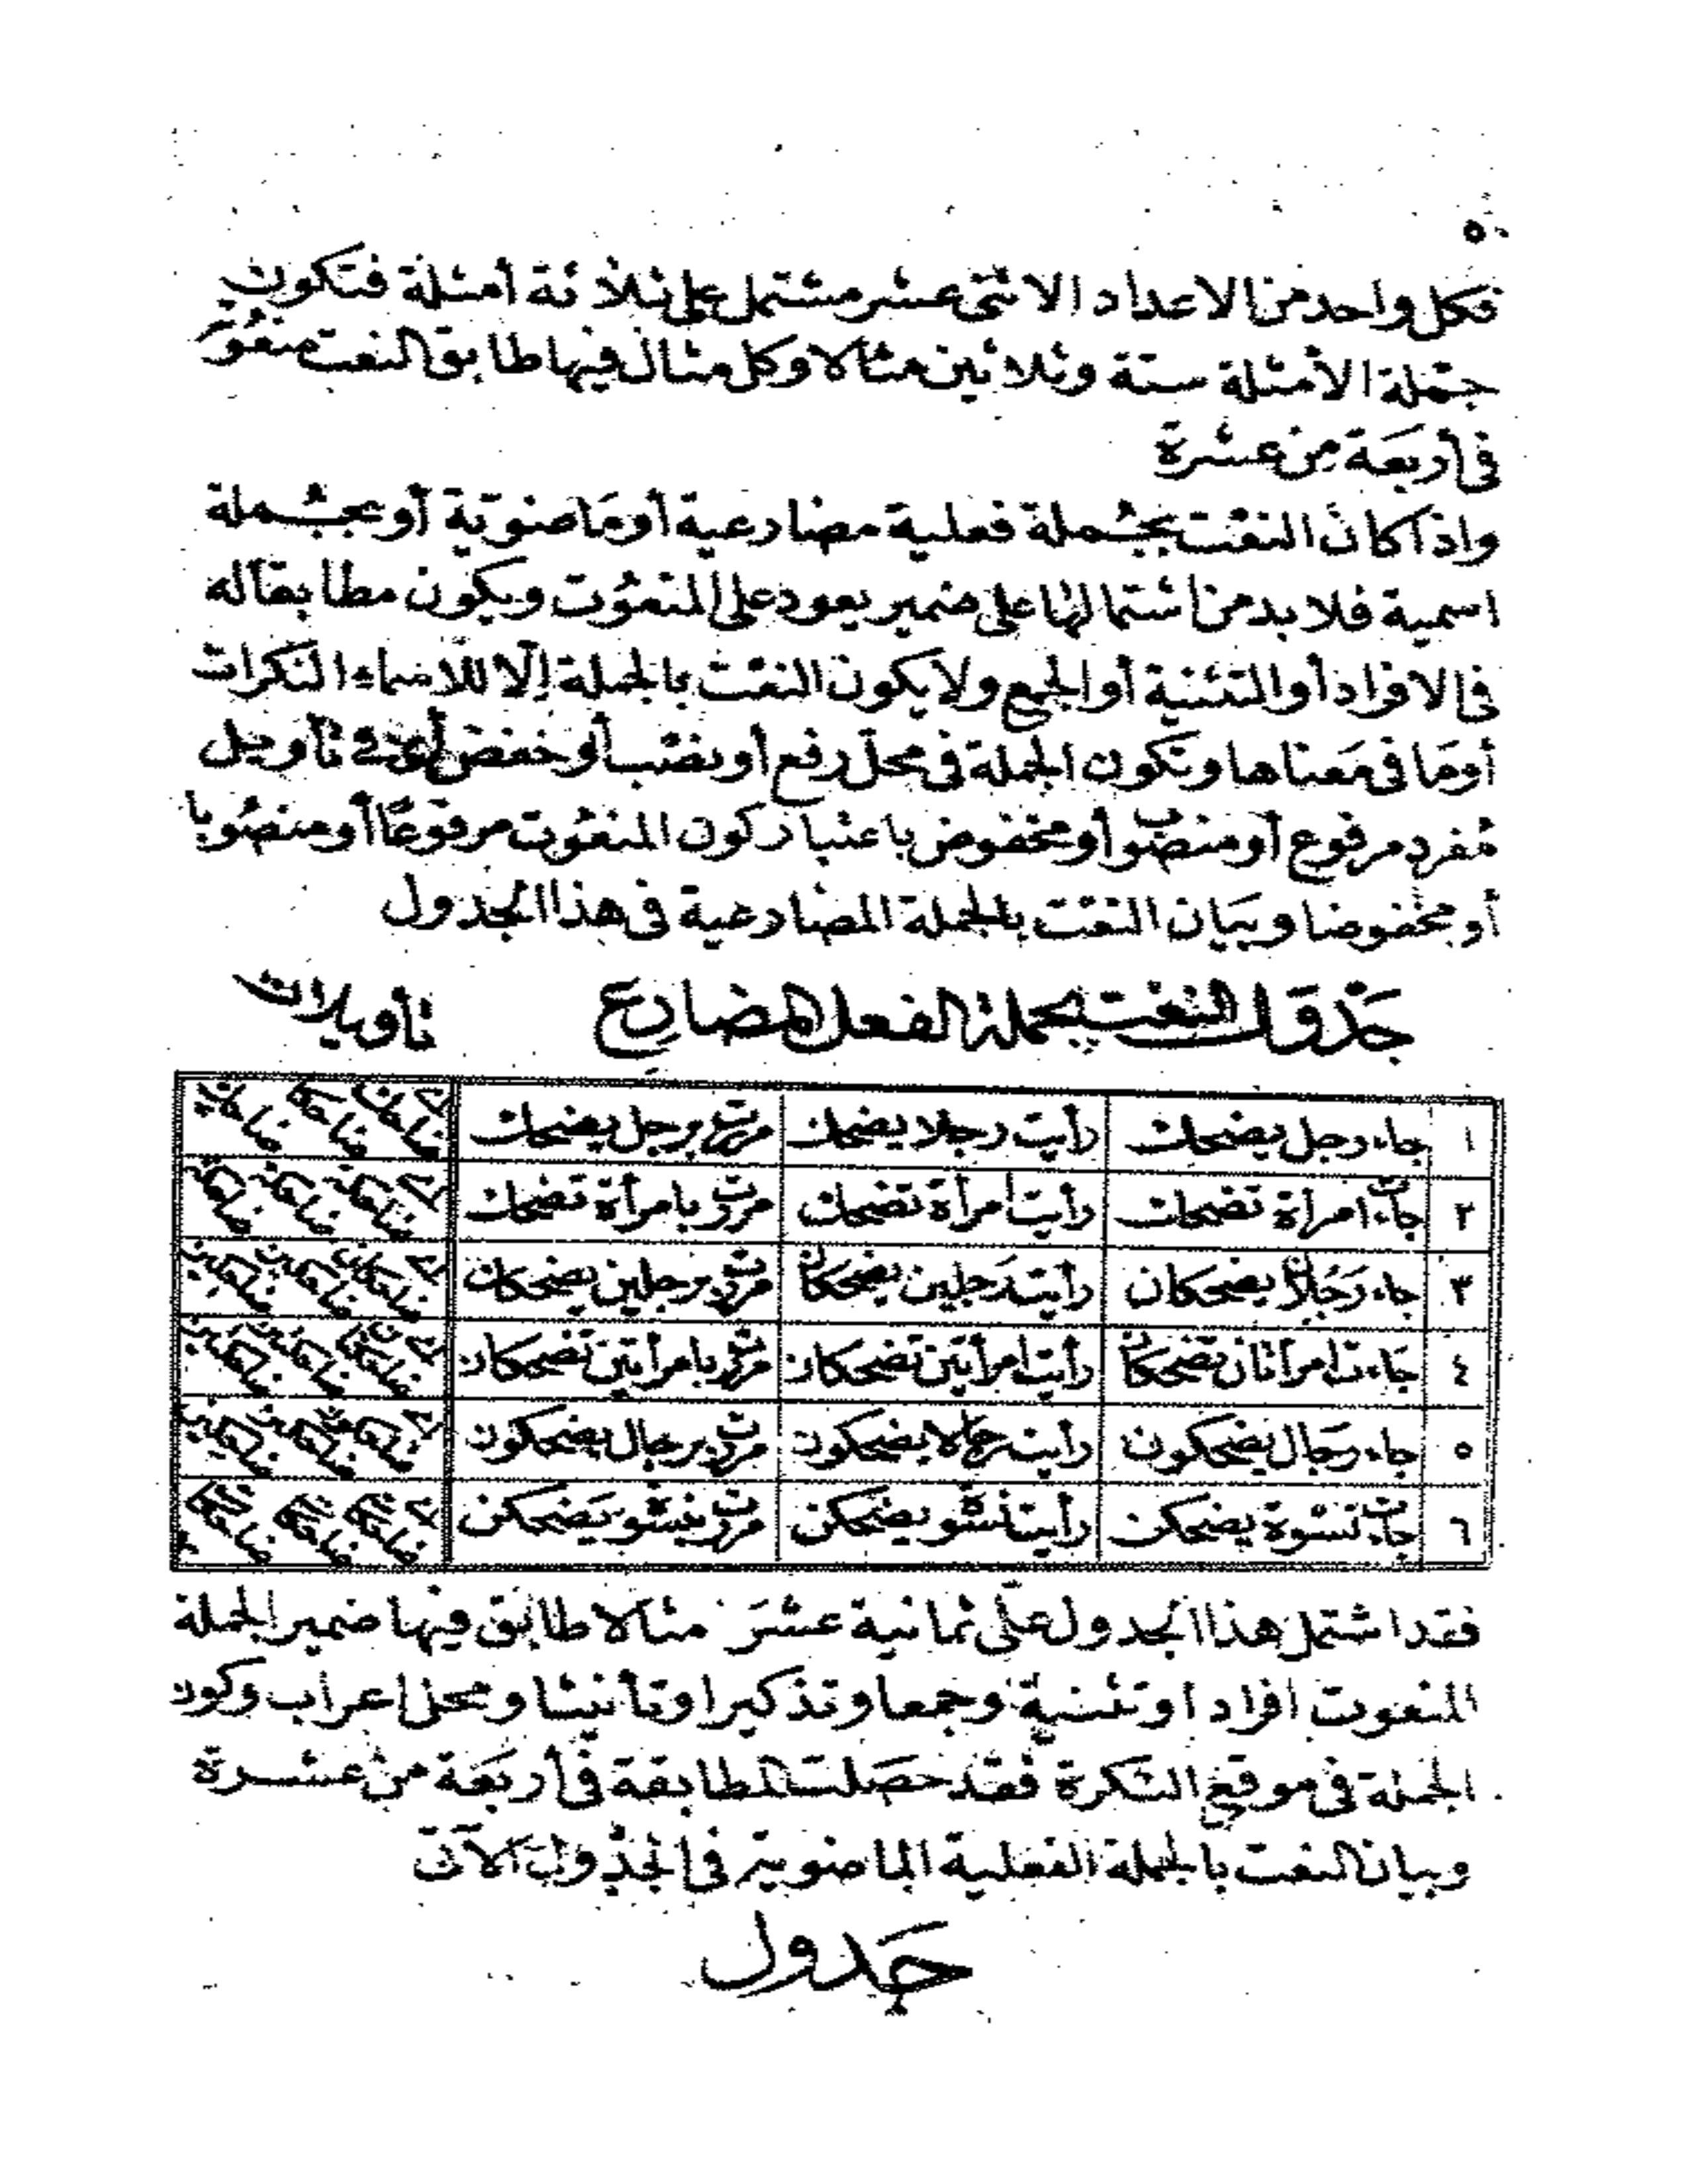 ٥٠
فكل واحد من الاعداد الاثنى عشر مشتمل على ثلاثة أمثلة فتكون
جملة الأمثلة ستة وثلاثين مثالا وكل مثال فيها طابق النعت منعوته
فى أربعة من عشرة
واذا كان النعت بجملة فعلية مضارعية أو ماضوية أو بجملة
اسمية فلا بد من اشتمالها على ضمير يعود على المنعوت ويكون مطابقا له
فى الافراد أو التثنية أو الجمع ولا يكون النعت بالجملة إلا للاسماء النكرات
أو ما فى معناها وتكون الجملة فى محل رفع أو نصب أو خفض أى فى تأويل
مفرد مرفوع أو منصوب أو مخفوض باعتبار كون المنعوت مرفوعا أو منصوبا
أو مخفوضا وبيان النعت بالجملة المضارعية فى هذا الجدول
جدول النعت بجملة الفعل المضارع تأويلات
١ جاء رجل يضحك رأيت رجلا يضحك مررت برجل يضحك أى ضاحك ضاحكا ضاحك
٢ جاءت امرأة تضحك رأيت امرأة تضحك مررت بامرأة تضحك أى ضاحكة ضاحكة ضاحكة
٣ جاء رجلان يضحكان رأيت رجلين يضحكان مررت برجلين يضحكان أى ضاحكان ضاحكين ضاحكين
٤ جاءت امرأتان تضحكان رأيت امرأتين تضحكان مررت بامرأتين تضحكان أى ضاحكتان ضاحكتين ضاحكتين
٥ جاء رجال يضحكون رأيت رجالا يضحكون مررت برجال يضحكون أى ضاحكون ضاحكين ضاحكين
٦ جاءت نسوة يضحكن رأيت نسوة يضحكن مررت بنسوة يضحكن أى ضاحكات ضاحكات ضاحكات
فقد اشتمل هذا الجدول على ثمانية عشر مثالا طابق فيها ضمير الجملة
المنعوت افرادا وتثنية وجمعا وتذكيرا وتأنيثا ومحل اعراب وكون
الجملة فى موقع النكرة فقد حصلت المطابقة فى أربعة من عشرة
وبيان النعت بالجملة الفعلية الماضوية فى الجدول الآتى
جدول